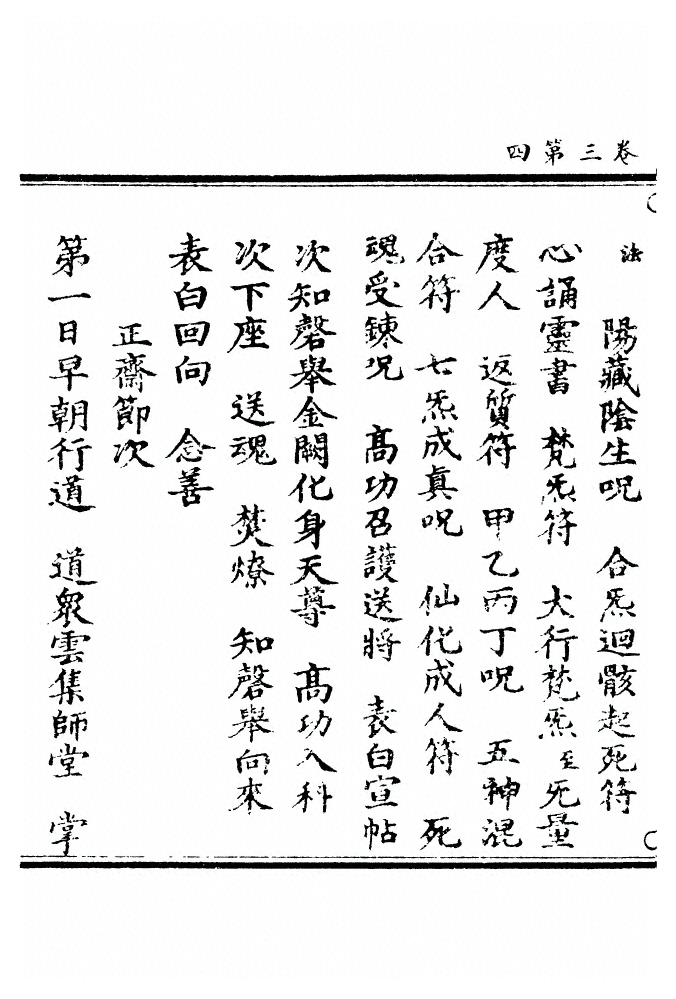 卷三第四
法　陽藏陰生呪　合炁迴骸起死符
心誦靈書　梵炁符　大行梵炁至无量
度人　返質符　甲乙丙丁呪　五神混
合符　七炁成真呪　仙化成人符　死
魂受鍊呪　高功召護送將　表白宣帖
次知磬舉金闕化身天尊　高功入科
次下座　送魂　焚燎　知磬舉向來
表白回向　念善
正齋節次
第一日早朝行道　道衆雲集師堂　掌